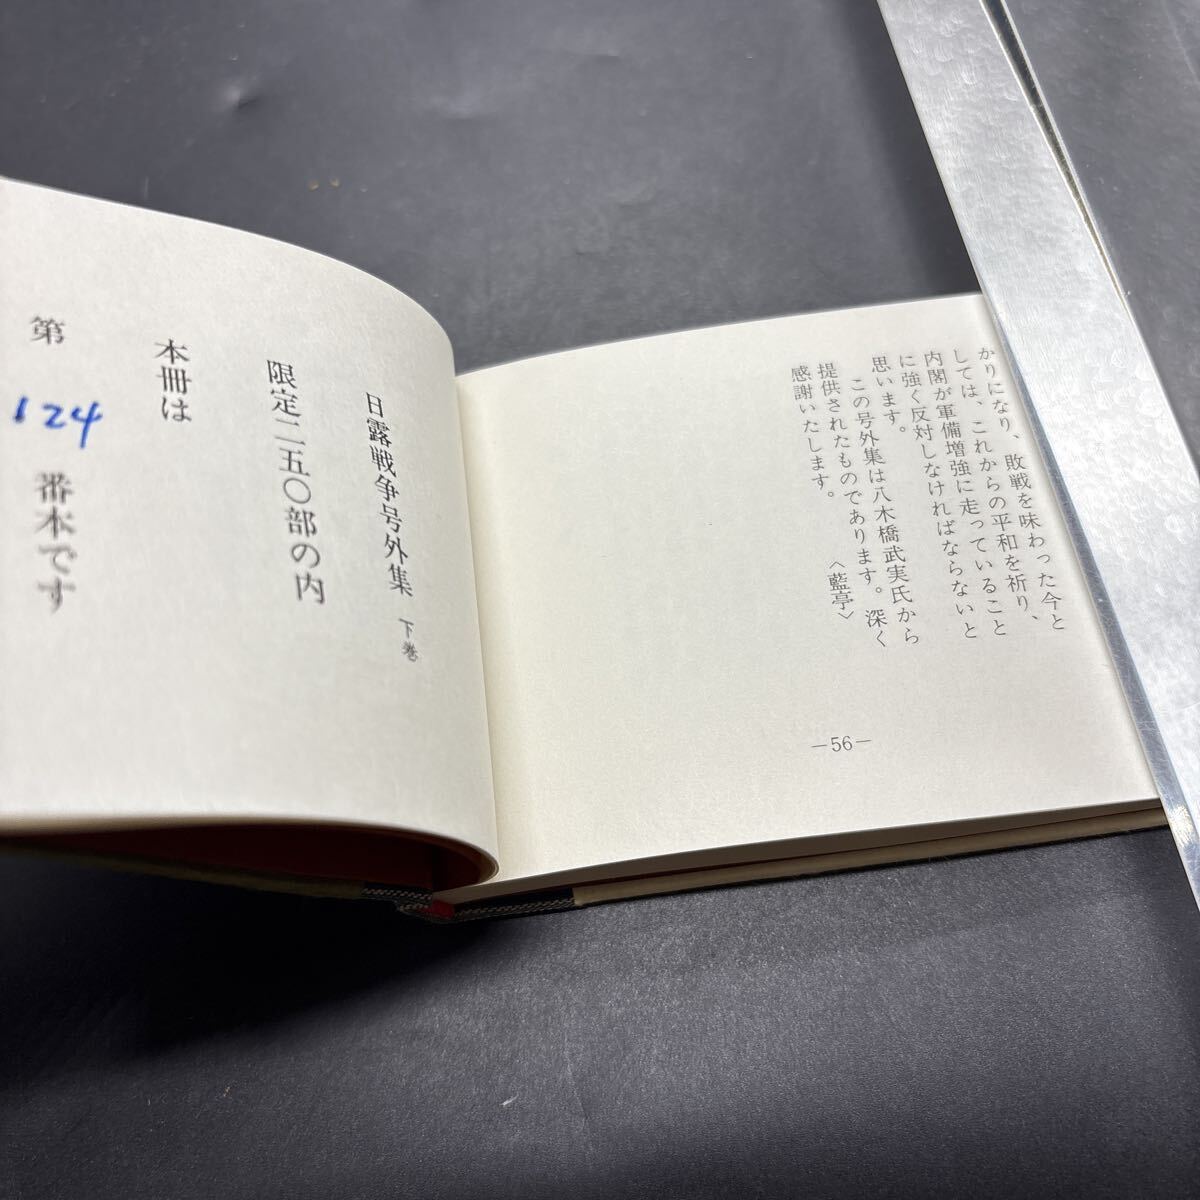 かりになり、敗戦を味わった今と
しては、これからの平和を祈り、
内閣が軍備増強に走っていること
に強く反対しなければならないと
思います。
この号外集は八木橋武実氏から
提供されたものであります。深く
感謝いたします。
〈藍亭〉
—56—
日露戦争号外集 下巻
限定二五〇部の内
本冊は
第 124 番本です